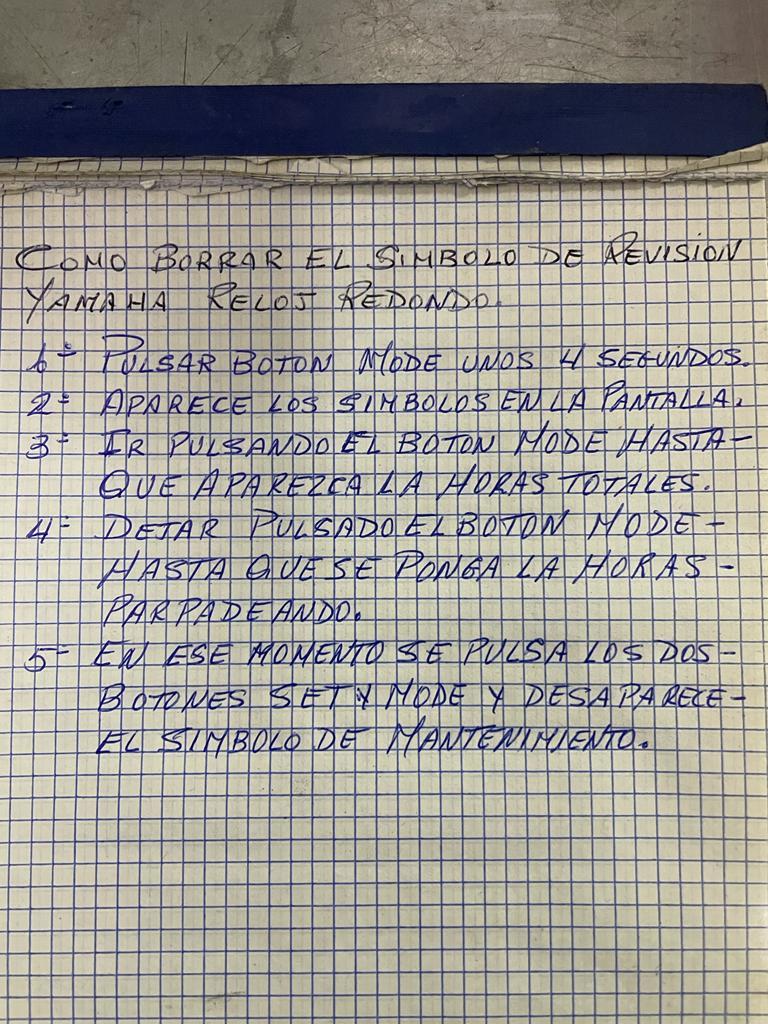 COMO BORRAR EL SIMBOLO DE REVISION
YAMAHA RELOJ REDONDO.
1º PULSAR BOTON MODE UNOS 4 SEGUNDOS.
2º APARECE LOS SIMBOLOS EN LA PANTALLA.
3º IR PULSANDO EL BOTON MODE HASTA-
QUE APAREZCA LA HORAS TOTALES.
4º DEJAR PULSADO EL BOTON MODE-
HASTA QUE SE PONGA LA HORAS-
PARPADEANDO.
5º EN ESE MOMENTO SE PULSA LOS DOS-
BOTONES SET Y MODE Y DESAPARECE-
EL SIMBOLO DE MANTENIMIENTO.